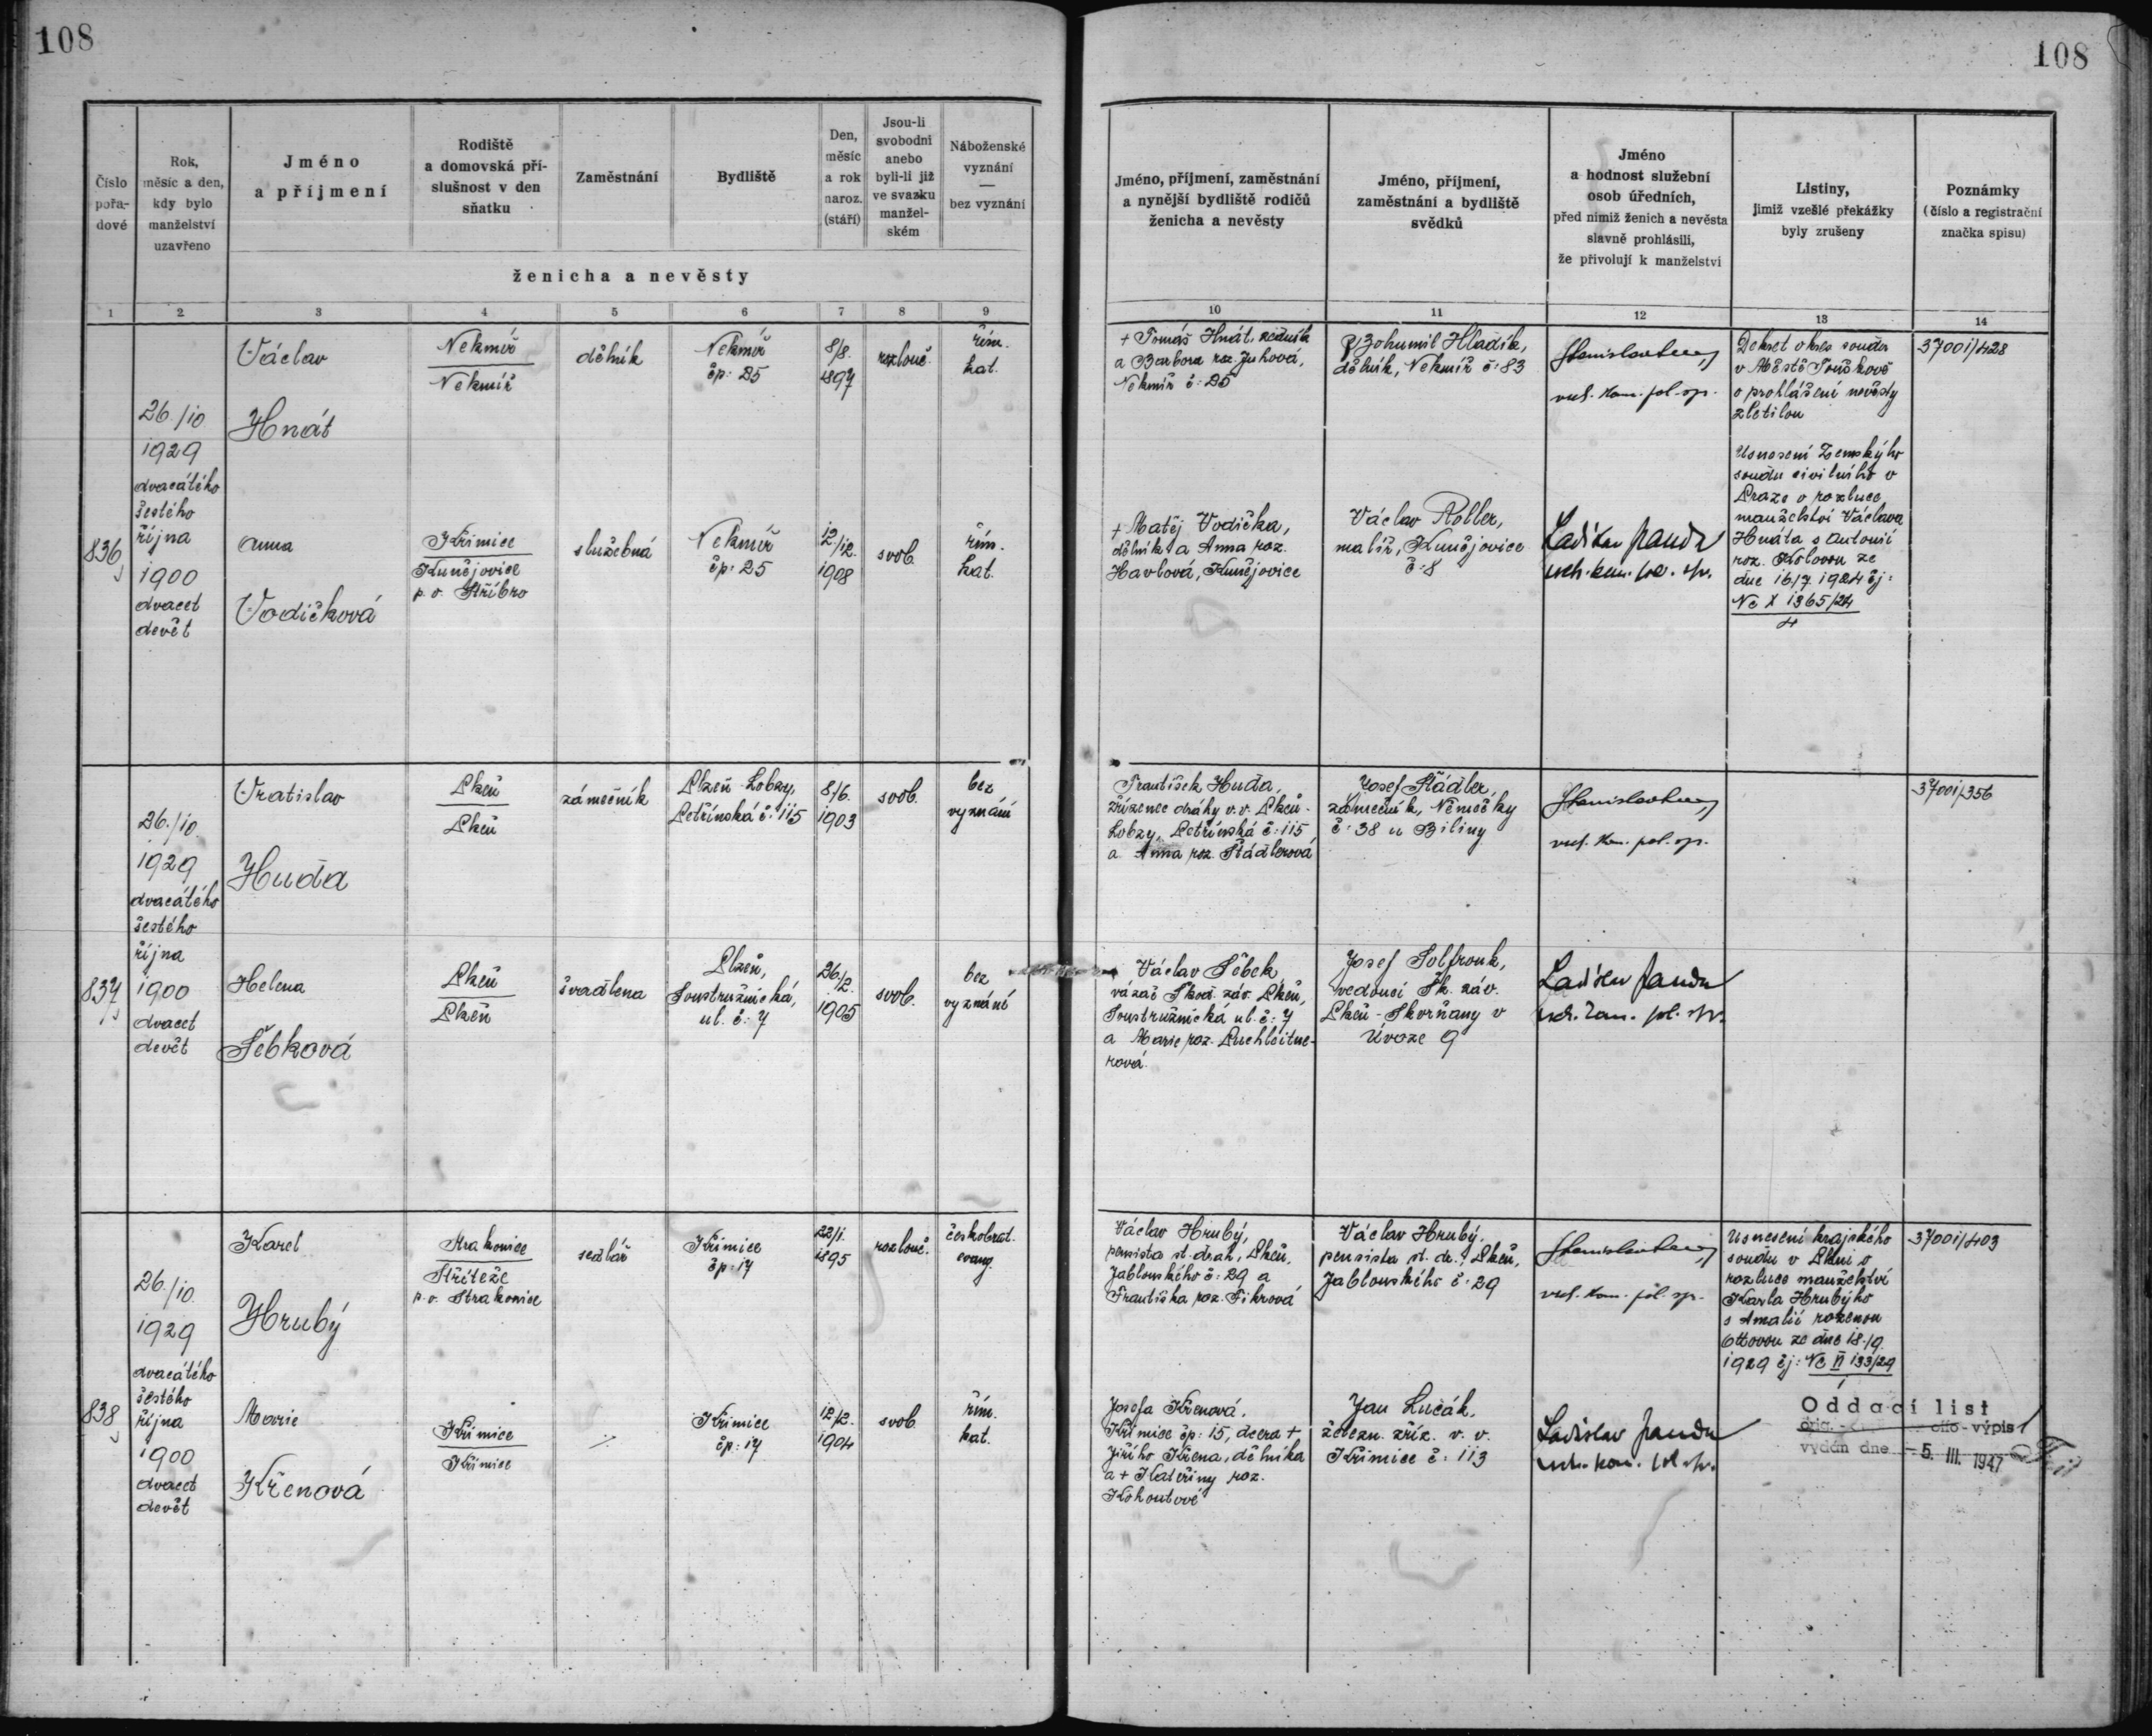 108
108
Číslo
pořa-
dové
Rok,
měsíc a den,
kdy bylo
manželství
uzavřeno
Jméno
a příjmení
Rodiště
a domovská pří-
slušnost v den
sňatku
Zaměstnání
Bydliště
Den,
měsíc
a rok
naroz.
(stáří)
Jsou-li
svobodni
anebo
byli-li již
ve svazku
manžel-
ském
Náboženské
vyznání
—
bez vyznání
ženicha a nevěsty
Jméno, příjmení, zaměstnání
a nynější bydliště rodičů
ženicha a nevěsty
Jméno, příjmení,
zaměstnání a bydliště
svědků
Jméno
a hodnost služební
osob úředních,
před nimiž ženich a nevěsta
slavně prohlásili,
že přivolují k manželství
Listiny,
jimiž vzešlé překážky
byly zrušeny
Poznámky
(číslo a registrační
značka spisu)
1 2 3 4 5 6 7 8 9
10 11 12 13 14
836
26./10
1929
dvacátého
šestého
října
1900
dvacet
devět
Václav
Hnát
Nekmíř
Nekmíř
dělník
Nekmíř
čp: 25
8/8.
1897
rozlouč.
řím.
kat.
+ Tomáš Hnát, zedník
a Barbora roz. Juhová,
Nekmíř č: 25
Bohumil Hladík,
dělník, Nekmíř č: 83
vrch. kom. pol. sp.
Dekret okres. soudu
v Městě Touškově
o prohlášení nevěsty
zletilou
37001/428
Usnesení Zemského
soudu civilního v
Praze o rozluce
manželství Václava
Hnáta s Antonií
roz. Kolovou ze
dne 16/7. 1924 čj:
Nc X 1365/24
4
Anna
Vodičková
Křimice
Kunějovice
p. o. Stříbro
služebná
Nekmíř
čp: 25
12/12.
1908
svob.
řím.
kat.
+ Matěj Vodička,
dělník a Anna roz.
Havlová, Kunějovice
Václav Roller,
malíř, Kunějovice
č: 8
Ladislav Janda
vrch. kom. pol. sp.
837
26./10.
1929
dvacátého
šestého
října
1900
dvacet
devět
Vratislav
Huda
Plzeň
Plzeň
zámečník
Plzeň-Lobzy,
Petřínská č: 115
8/6.
1903
svob.
bez
vyznání
František Huda,
zřízenec dráhy v. v. Plzeň-
Lobzy, Petřínská č: 115
a Anna roz. Štádlerová
Josef Štádler,
zámečník, Němečky
č: 38 u Biliny
vrch. kom. pol. sp.
37001/356
Helena
Šebková
Plzeň
Plzeň
švadlena
Plzeň,
Soustružnická,
ul. č: 7
26/2.
1905
svob.
bez
vyznání
Václav Šebek,
vázač Škod. záv. Plzeň,
Soustružnická ul. č: 7
a Marie roz. Puchleitne-
rová.
Josef Solfronk,
vedoucí Šk. záv.
Plzeň-Skvrňany v
Úvoze 9
Ladislav Janda
vrch. kom. pol. sp.
838
26./10.
1929
dvacátého
šestého
října
1900
dvacet
devět
Karel
Hrubý
Strakonice
Střiteže
p. o. Strakonice
sedlář
Křimice
čp: 17
22/1.
1895
rozlouč.
českobrat.
evang.
Václav Hrubý,
pensista st. drah, Plzeň,
Jablonského č: 29 a
Františka roz. Fikrová
Václav Hrubý,
pensista st. dr., Plzeň,
Jablonského č: 29
vrch. kom. pol. sp.
Usnesení krajského
soudu v Plzni o
rozluce manželství
Karla Hrubýho
s Amalií rozenou
Ottovou ze dne 18./9.
1929 čj: Nc II 133/29
37001/403
Marie
Křenová
Křimice
Křimice
Křimice
čp: 17
12/2.
1904
svob.
řím.
kat.
Josefa Křenová,
Křimice čp: 15, dcera +
Jiřího Křena, dělníka
a + Kateřiny roz.
Kohoutové
Jan Lucák,
železn. zříz. v. v.
Křimice č: 113
Ladislav Janda
vrch. kom. pol. sp.
Oddací list
výpis
vydán dne – 5. III. 1947